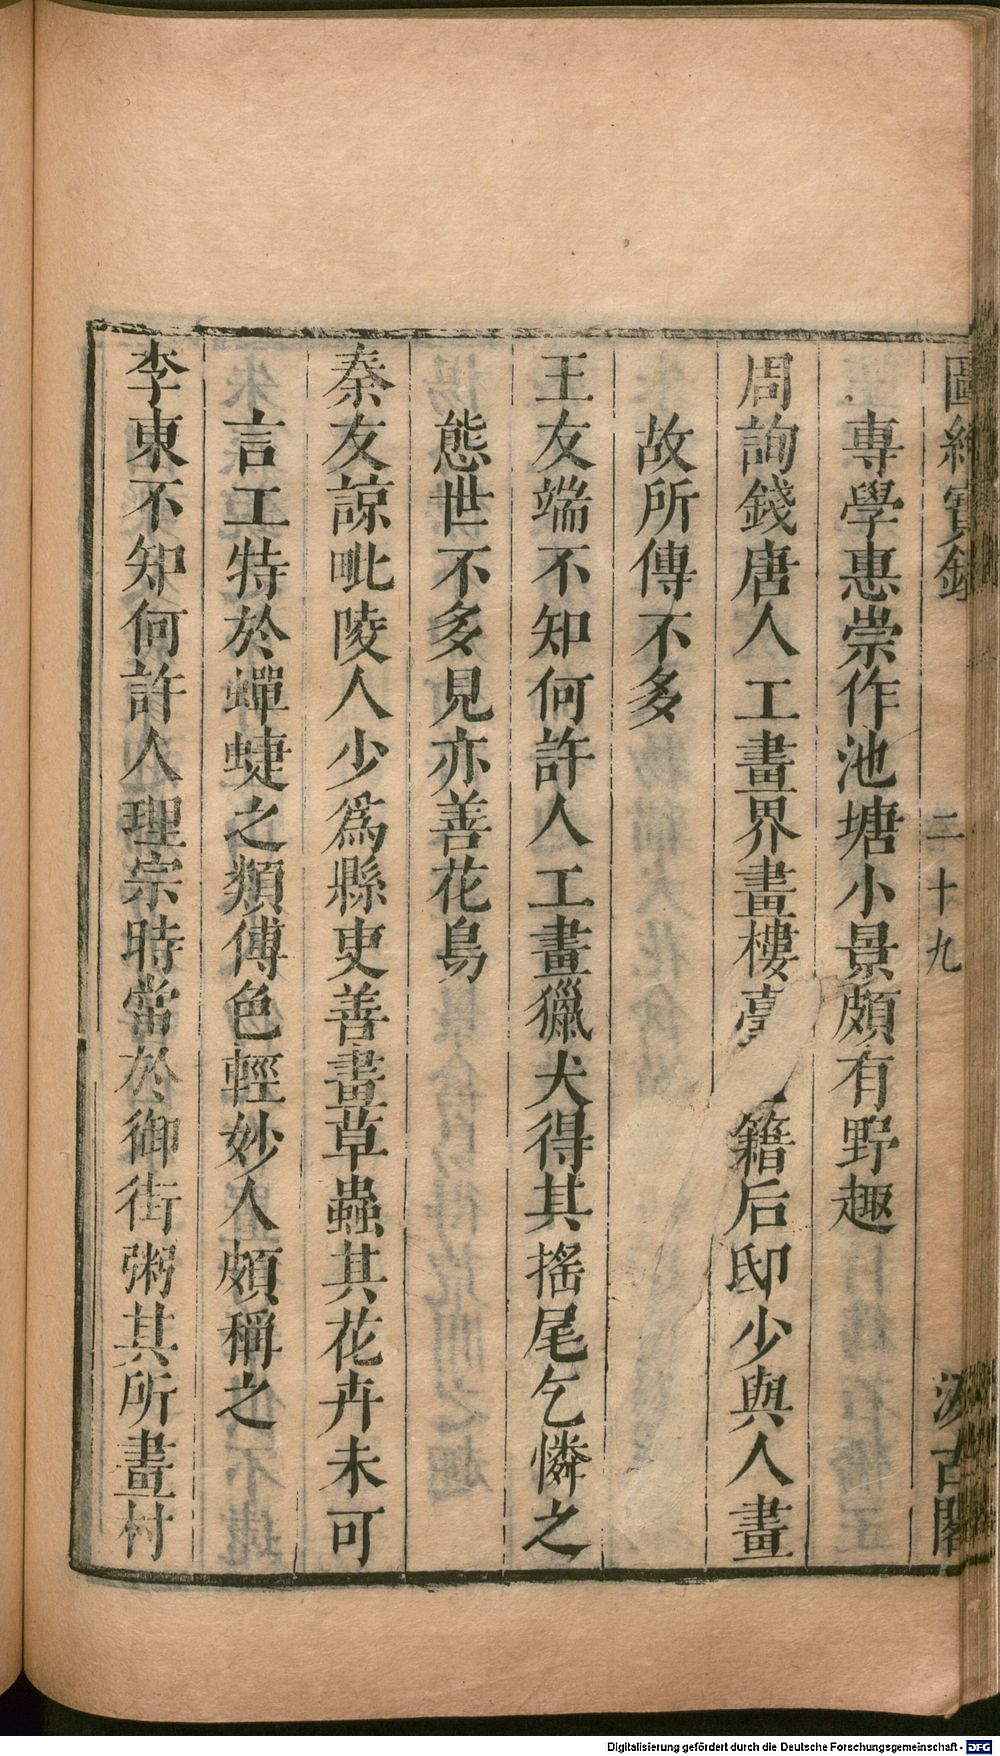 圖繪寶鑑 二十九 汲古閣
專學惠崇作池塘小景頗有野趣
周詢錢唐人工畫界畫樓臺 籍后邸少與人畫
故所傳不多
王友端不知何許人工畫獵犬得其搖尾乞憐之
態世不多見亦善花鳥
秦友諒毗陵人少爲縣吏善畫草蟲其花卉未可
言工特於蟬蜨之類傅色輕妙人頗稱之
李東不知何許人理宗時當於御街粥其所畫村
Digitalisierung gefördert durch die Deutsche Forschungsgemeinschaft - DFG